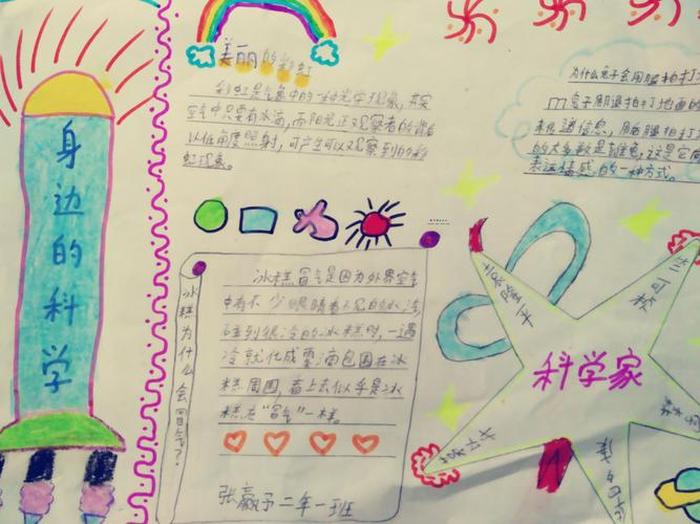 身边的科学
美丽的彩虹
彩虹是气象中的一种光学现象,其实
空气中只要有水滴,而阳光正双观察者的背后
以低角度照射,可产生可以观察到的彩
虹现象。
为什么兔子会用脚拍打
的大多数是雄兔,这是它们
表达情感的一种方式。
冰糕为什么会冒气?
冰糕冒气是因为外界空气
中有不少眼睛看不见的水汽
碰到很冷的冰糕时,一遇
冷就化成雾滴包围在冰
糕周围,看上去似乎是冰
糕在“冒气”一样。
张赢予二年一班
科学家
袁隆平